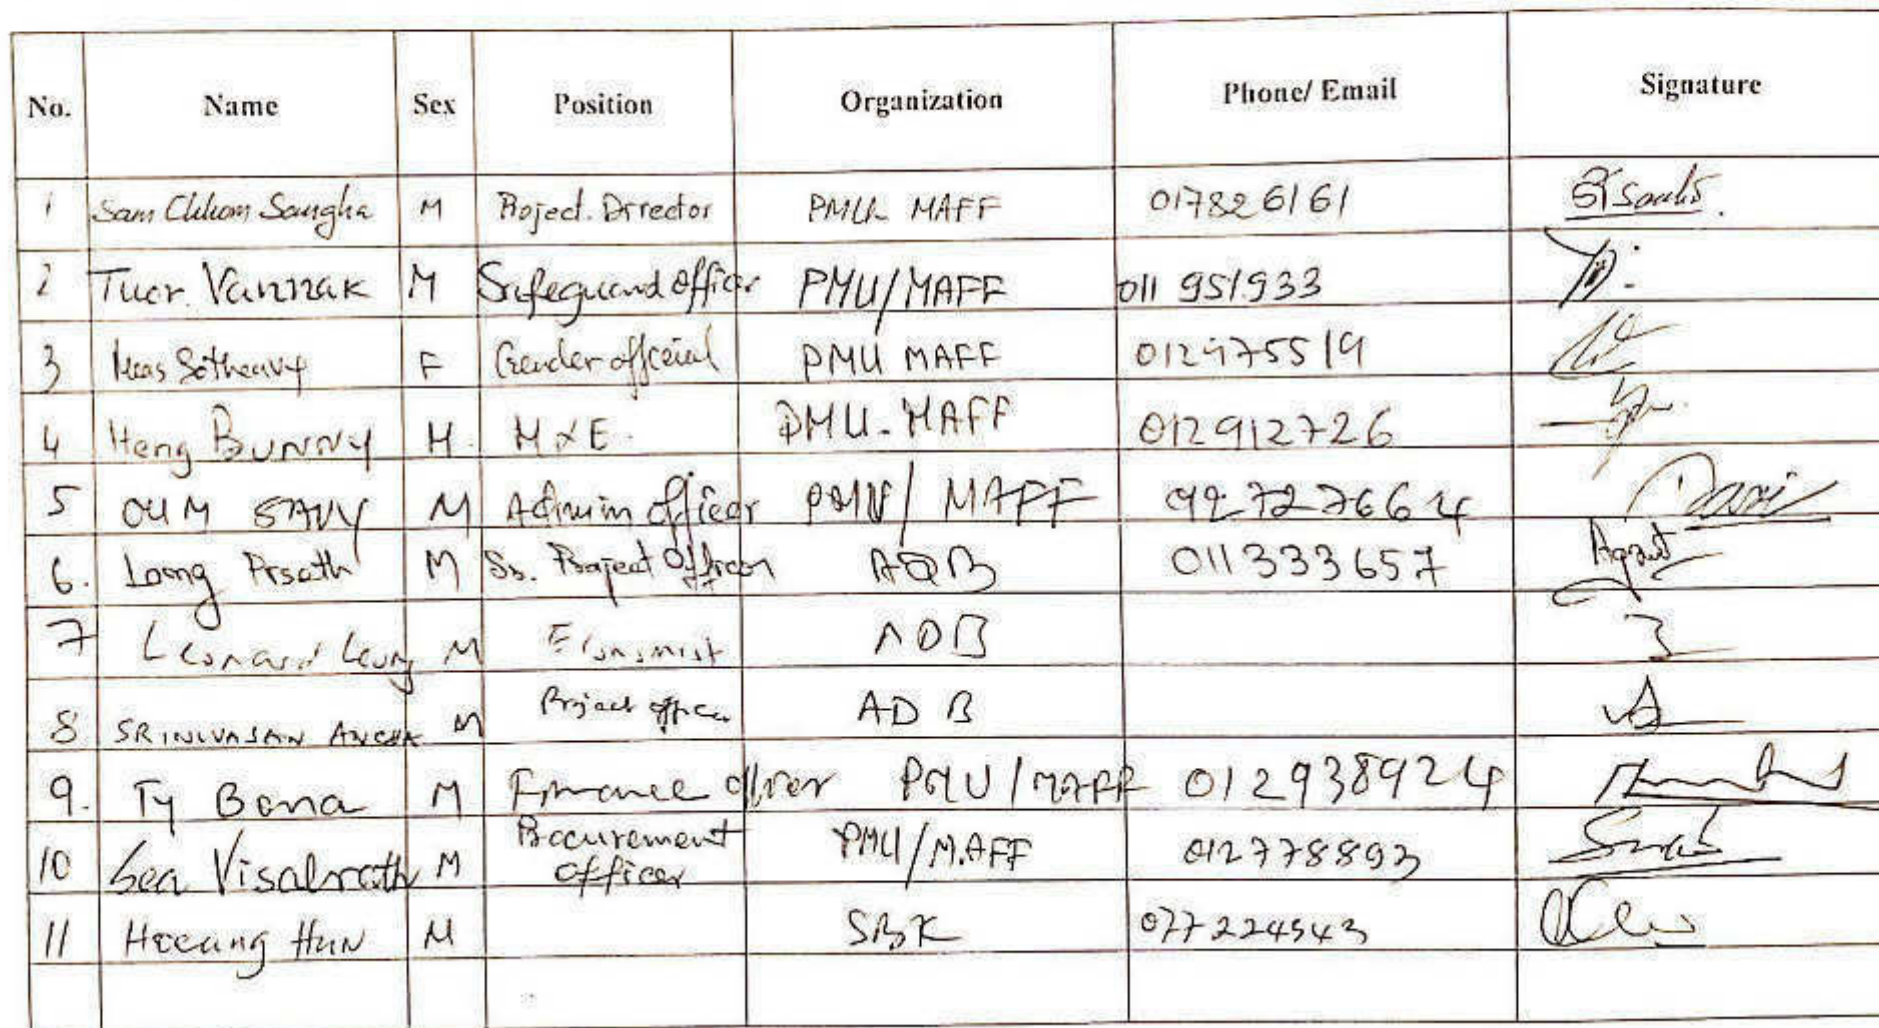 No. Name Sex Position Organization Phone/ Email Signature
1 Sam Chhom Sangha M Project. Director PMU MAFF 017826161
2 Vannak M Safeguard officer PMU/MAFF 011 951933
3 Meas Sotheavy F Gender official PMU MAFF
4 Heng BUNNY M. M&E. PMU-MAFF 012912726
5 OUM SAVY M Admin officer PMU/MAFF
6. Long Piseth M Project Officer ADB 011333657
7 Leonard Leung M Economist ADB
8 SRINIVASAN M Project officer ADB
9. Ty Bona M Finance PMU/MAFF 012938924
10 Sea M Procurement PMU/MAFF 012778893
officer
11 Hun M SBK